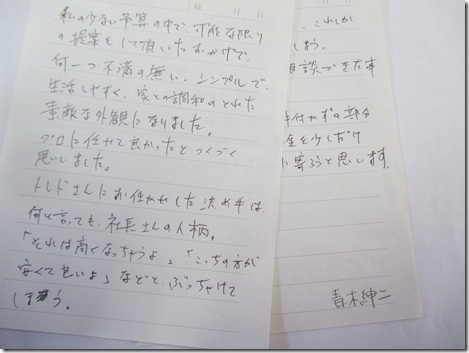 私の少ない予算の中で、可能な限り
の提案をして頂いたおかげで、
何一つ不満の無い、シンプルで、
生活しやすく、家との調和のとれた
素敵な外観になりました。
プロに任せて良かったとつくづく
思いました。
トレドさんにお任せした決め手は、
何と言っても、社長さんの人柄。
「それは高くなっちゃうよ」「こっちの方が
安くて良いよ」などと、ぶっちゃけて
しまう。
これしか
しょう。
相談づ
付かずの部分
金を少しだけ
に寄ろうと思います。
青木紳二